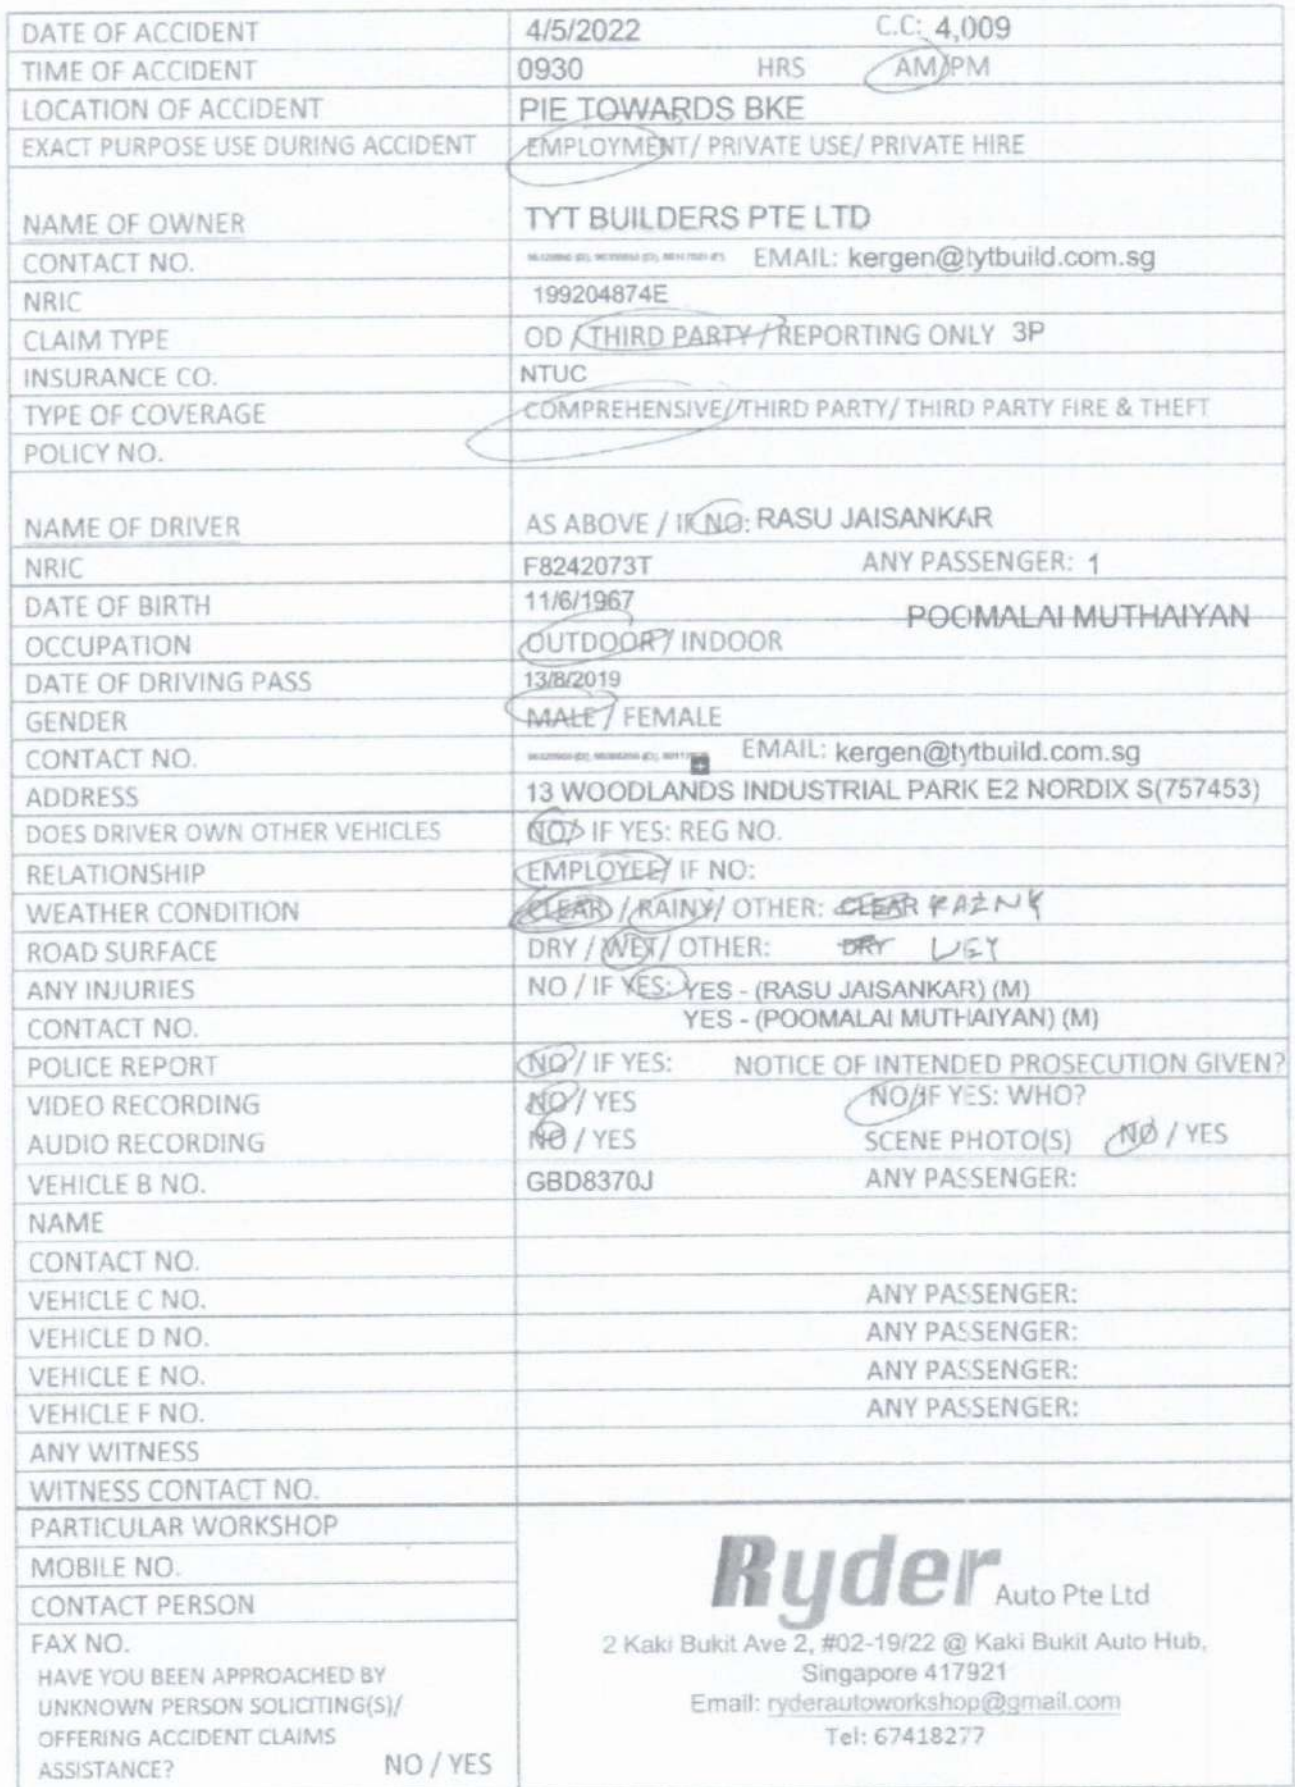 DATE OF ACCIDENT 4/5/2022 C.C: 4,009
TIME OF ACCIDENT 0930 HRS AM/PM
LOCATION OF ACCIDENT PIE TOWARDS BKE
EXACT PURPOSE USE DURING ACCIDENT EMPLOYMENT/ PRIVATE USE/ PRIVATE HIRE
NAME OF OWNER TYT BUILDERS PTE LTD
CONTACT NO. EMAIL: kergen@tytbuild.com.sg
NRIC 199204874E
CLAIM TYPE OD / THIRD PARTY / REPORTING ONLY 3P
INSURANCE CO. NTUC
TYPE OF COVERAGE COMPREHENSIVE/ THIRD PARTY/ THIRD PARTY FIRE & THEFT
POLICY NO.
NAME OF DRIVER AS ABOVE / IF NO: RASU JAISANKAR
NRIC F8242073T ANY PASSENGER: 1
DATE OF BIRTH 11/6/1967 POOMALAI MUTHAIYAN
OCCUPATION OUTDOOR / INDOOR
DATE OF DRIVING PASS 13/8/2019
GENDER MALE / FEMALE
CONTACT NO. EMAIL: kergen@tytbuild.com.sg
ADDRESS 13 WOODLANDS INDUSTRIAL PARK E2 NORDIX S(757453)
DOES DRIVER OWN OTHER VEHICLES NO/ IF YES: REG NO.
RELATIONSHIP EMPLOYEE/ IF NO:
WEATHER CONDITION CLEAR / RAINY/ OTHER: CLEAR RAINY
ROAD SURFACE DRY / WET/ OTHER: DRY WET
ANY INJURIES NO / IF YES: YES - (RASU JAISANKAR) (M)
CONTACT NO. YES - (POOMALAI MUTHAIYAN) (M)
POLICE REPORT NO / IF YES: NOTICE OF INTENDED PROSECUTION GIVEN?
VIDEO RECORDING NO / YES NO/IF YES: WHO?
AUDIO RECORDING NO / YES SCENE PHOTO(S) NO / YES
VEHICLE B NO. GBD8370J ANY PASSENGER:
NAME
CONTACT NO.
VEHICLE C NO. ANY PASSENGER:
VEHICLE D NO. ANY PASSENGER:
VEHICLE E NO. ANY PASSENGER:
VEHICLE F NO. ANY PASSENGER:
ANY WITNESS
WITNESS CONTACT NO.
PARTICULAR WORKSHOP
MOBILE NO.
CONTACT PERSON
FAX NO.
HAVE YOU BEEN APPROACHED BY
UNKNOWN PERSON SOLICITING(S)/
OFFERING ACCIDENT CLAIMS
ASSISTANCE? NO / YES
Ryder Auto Pte Ltd
2 Kaki Bukit Ave 2, #02-19/22 @ Kaki Bukit Auto Hub,
Singapore 417921
Email: ryderautoworkshop@gmail.com
Tel: 67418277